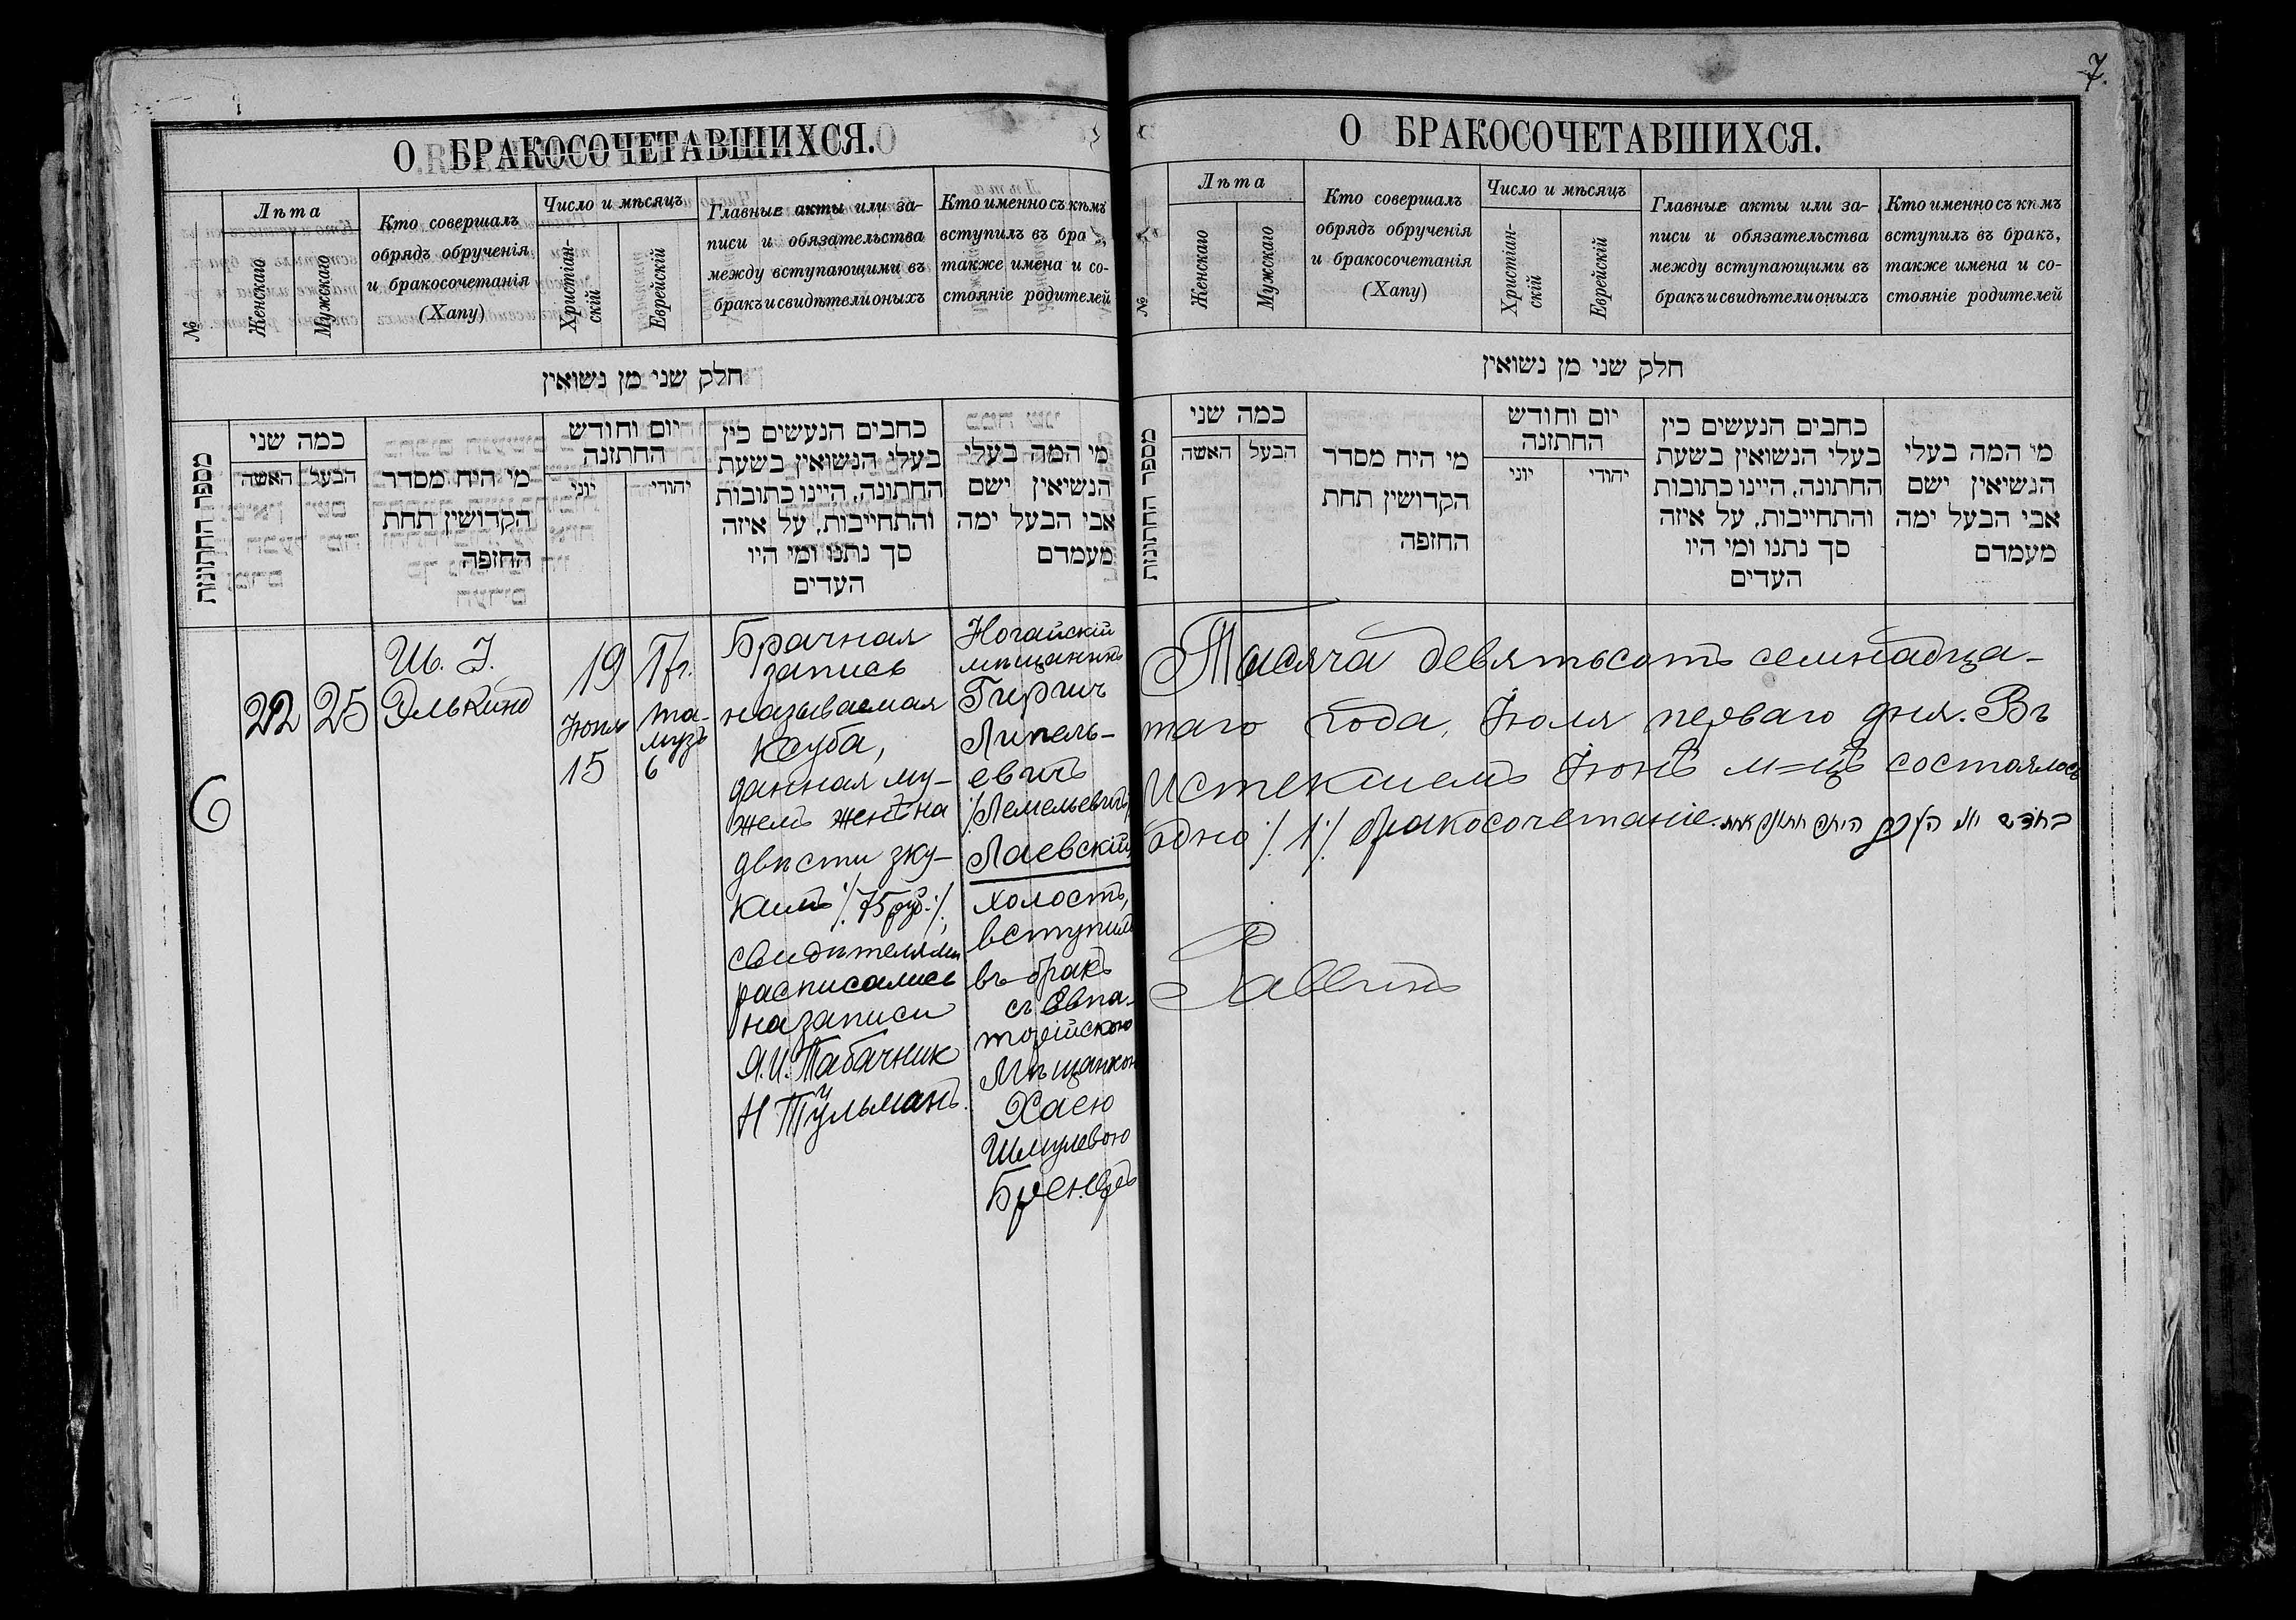 7.
О БРАКОСОЧЕТАВШИХСЯ.
№
Лѣта
Женскаго
Мужскаго
Кто совершалъ
обрядъ обрученія
и бракосочетанія
(Хапу)
Число и мѣсяцъ
Христіан-
скій
Еврейскій
Главные акты или за-
писи и обязательства
между вступающими въ
бракъ и свидѣтели оныхъ
Кто именно съ кѣмъ
вступилъ въ бра
также имена и со-
стояніе родителей
חלק שני מן נשואין
מספר החתונות
כמה שני
האשה
הבעל
מי היח מסדר
הקדושין תחת
החופה
יום וחודש
החתונה
יוני
יהודי
כתבים הנעשים כין
בעלי הנשואין בשעת
החתונה, היינו כתובות
והתחייבות, על איזה
סך נתנו ומי היו
העדים
מי המה בעלי
הנשיאין ישם
אבי הבעל ימה
מעמדם
6
22
25
Ш. І.
Элькинд
19 17 г.
Іюня
15
Та-
музъ
6
Брачная
запись
называемая
Ксуба,
данная му-
жемъ женѣ на
двѣсти зку-
кимъ /. 75 руб. ./,
свидѣтелями
расписались
на записи
Я. И. Табачник
и
Н Тульманъ.
Ногайскій
мѣщанинъ
Гиршъ
Липель-
евичъ
/Лемельевичъ/
Лаевскій,
холостъ,
вступилъ
въ бракъ
съ Евпа-
торійскою
Мѣщанкою
Хаею
Шмулевою
Бренеръ
О БРАКОСОЧЕТАВШИХСЯ.
№
Лѣта
Женскаго
Мужскаго
Кто совершалъ
обрядъ обрученія
и бракосочетанія
(Хапу)
Число и мѣсяцъ
Христіан-
скій
Еврейскій
Главные акты или за-
писи и обязательства
между вступающими въ
бракъ и свидѣтели оныхъ
Кто именно съ кѣмъ
вступилъ въ бракъ,
также имена и со-
стояніе родителей
חלק שני מן נשואין
מספר החתונות
כמה שני
האשה
הבעל
מי היח מסדר
הקדושין תחת
החופה
יום וחודש
החתונה
יוני
יהודי
כתבים הנעשים כין
בעלי הנשואין בשעת
החתונה, היינו כתובות
והתחייבות, על איזה
סך נתנו ומי היו
העדים
מי המה בעלי
הנשיאין ישם
אבי הבעל ימה
מעמדם
Тысяча девятьсотъ семнадца-
таго года, Іюля перваго дня. Въ
истекшемъ Іюнѣ м=цѣ состоялось
одно /. 1 ./ бракосочетаніе.
Раввинъ